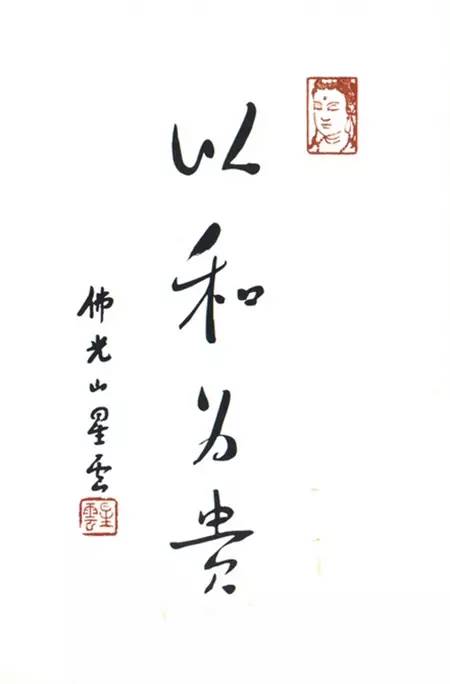 以和为贵
佛光山星雲
星雲